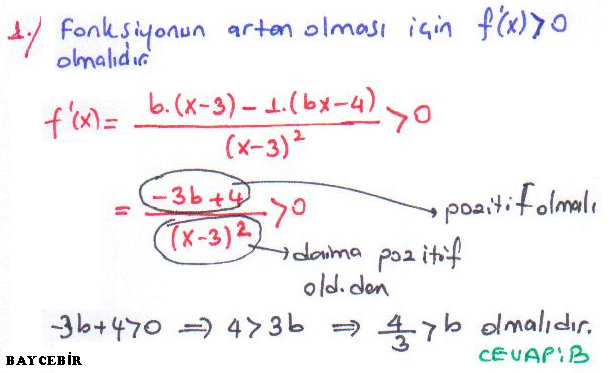 1./ Fonksiyonun artan olması için f'(x)>0
olmalıdır.
f'(x)= b.(x-3)-1.(bx-4) / (x-3)² >0
= -3b+4 / (x-3)² >0
→ pozitif olmalı
→ daima pozitif
old.dan
-3b+4>0 ⇒ 4>3b ⇒ 4/3 >b olmalıdır.
CEVAP:B
BAYCEBİR